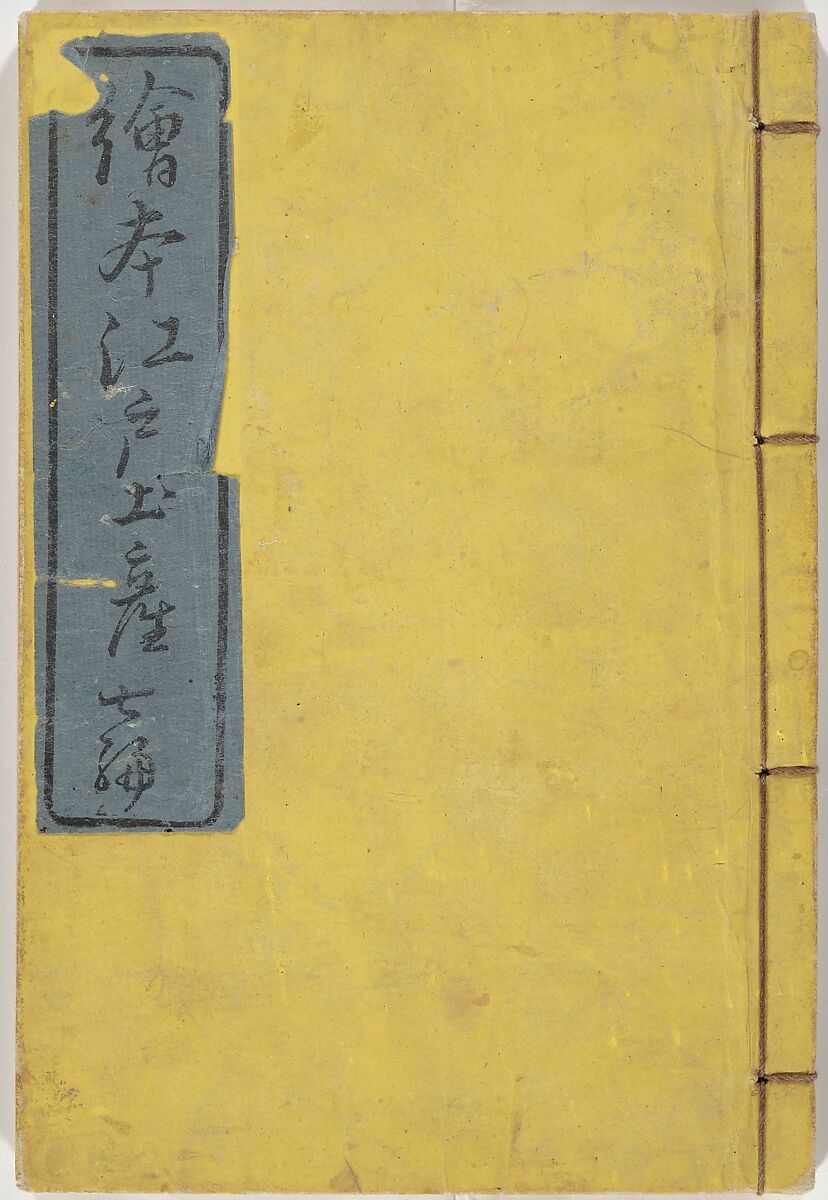 繪本江戸土産 七編